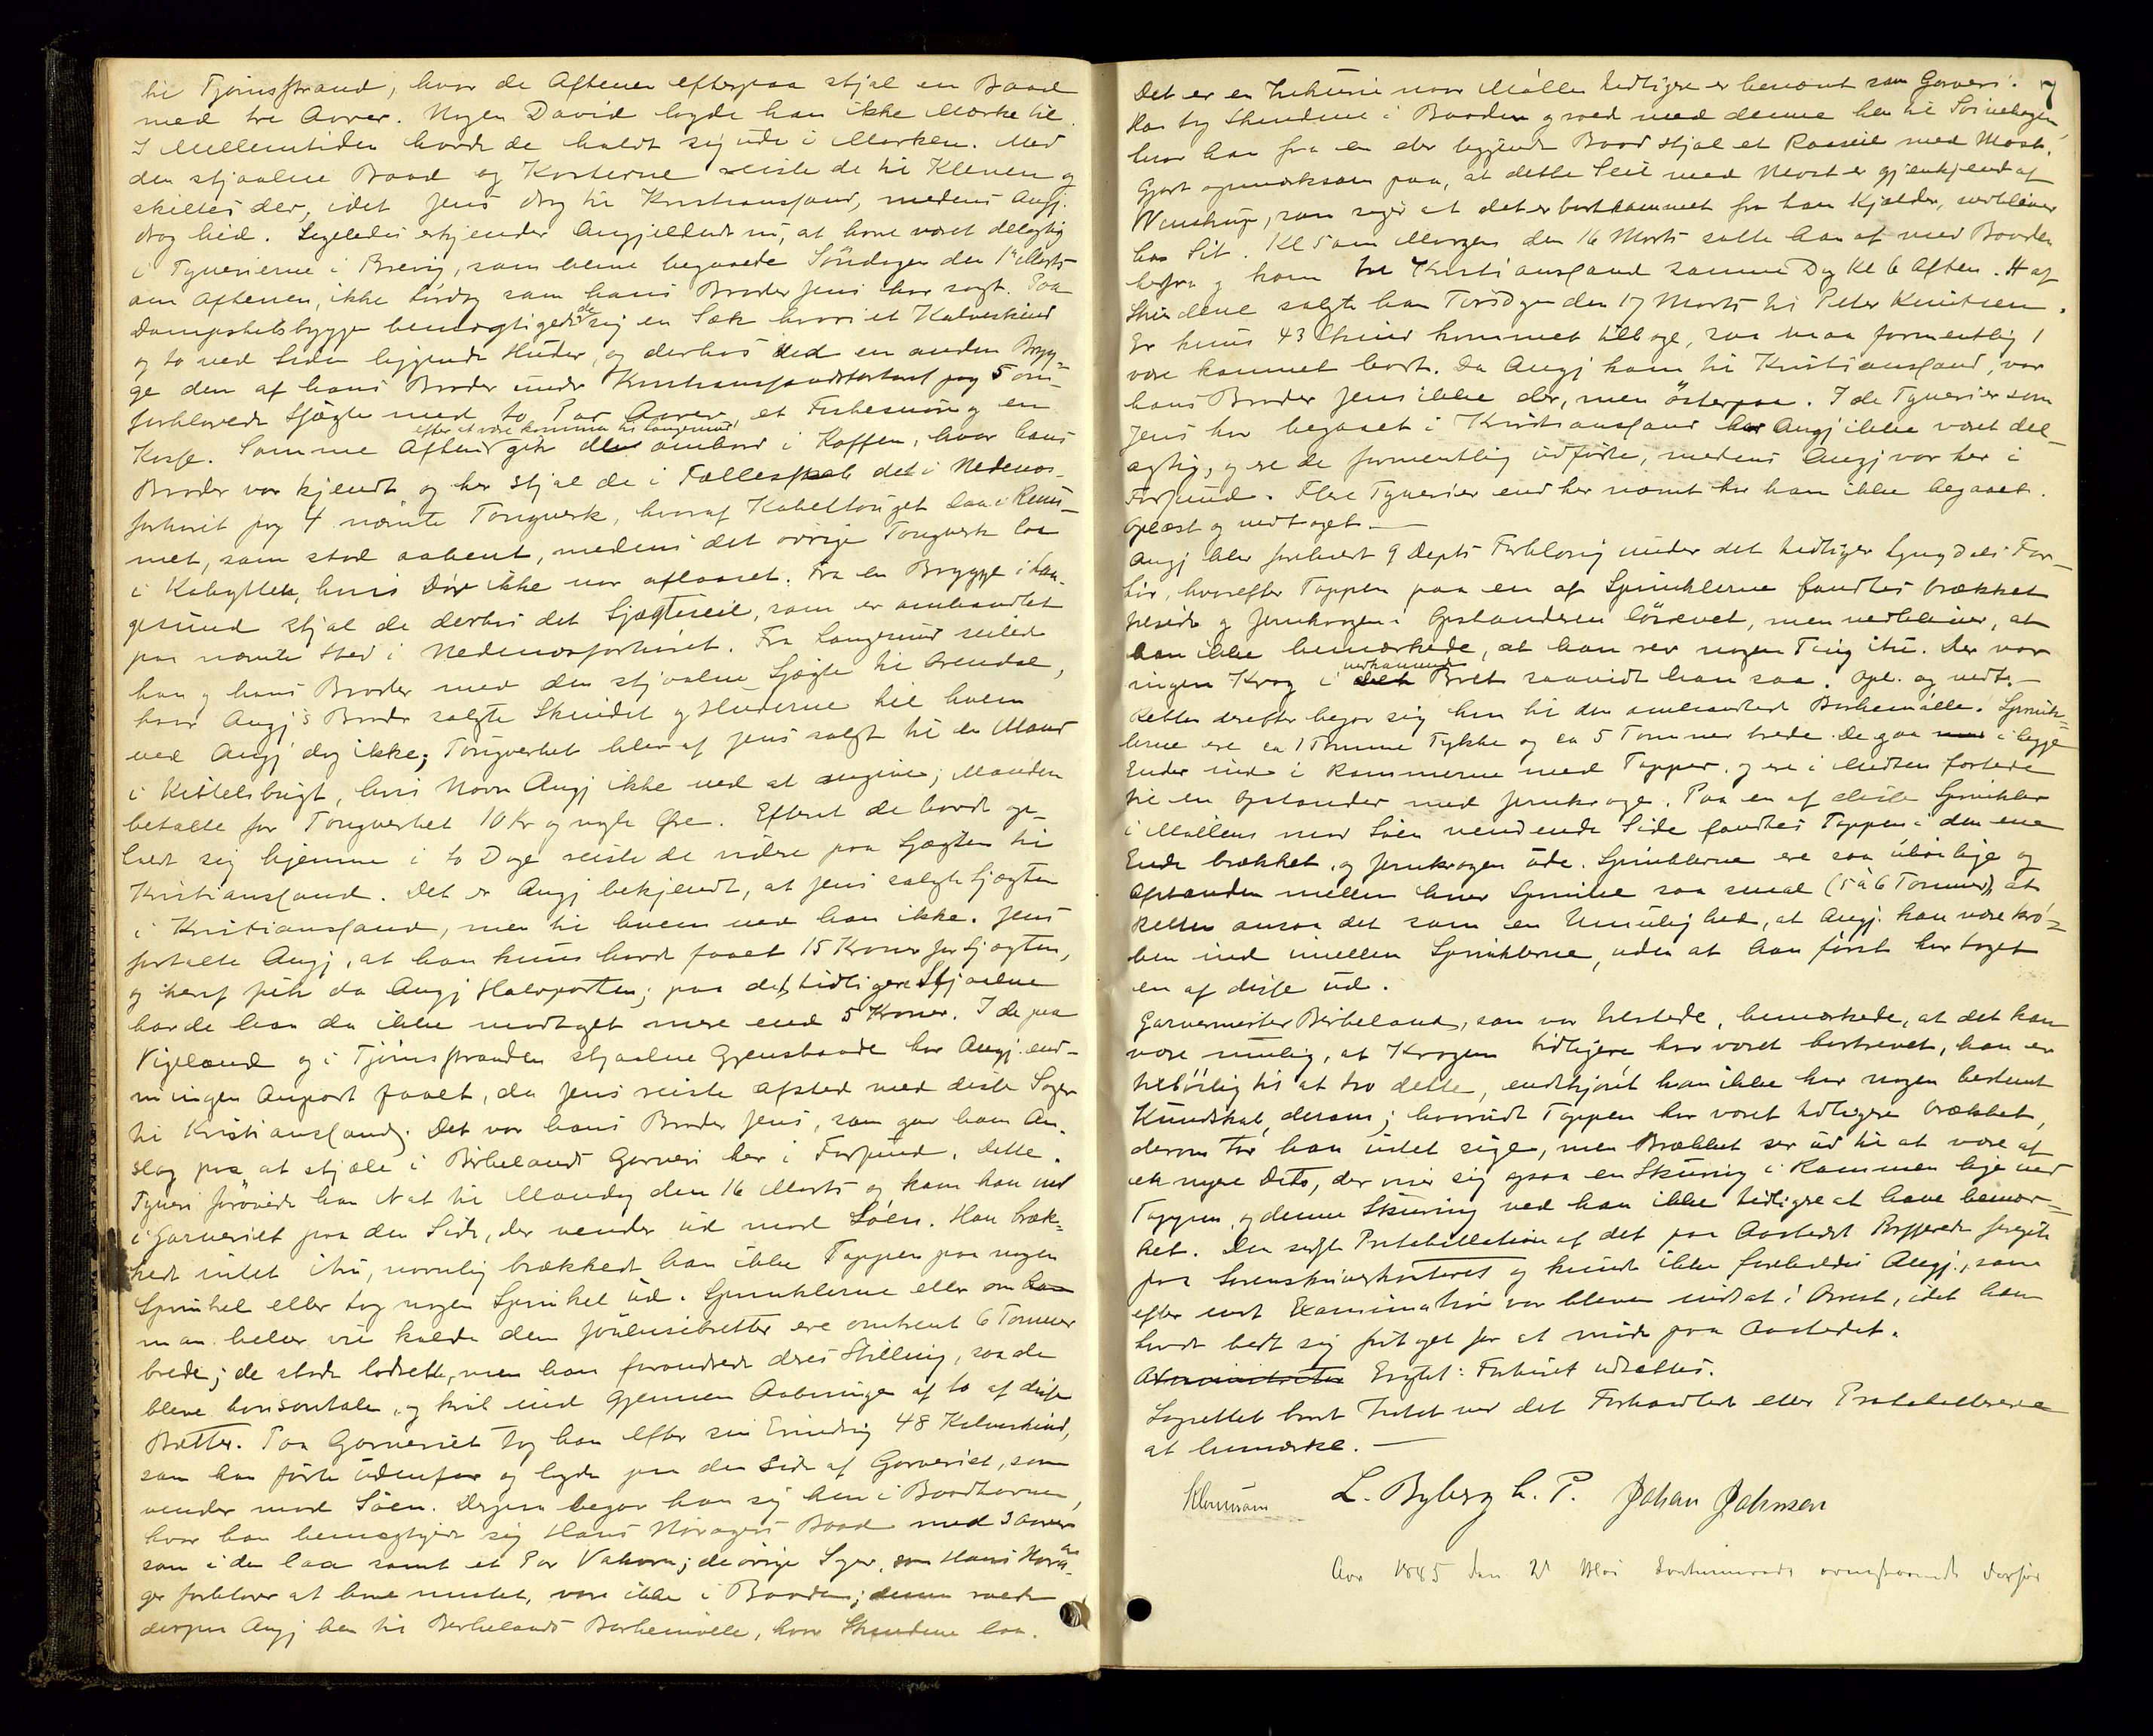 til Tjömsstrand, hvor de Aftenen efterpaa stjal en Baad
med tre Aarer. Nogen David lagde han ikke Mærke til.
I Mellemtiden havde de holdt sig ude i Marken. Med
den stjaalne Baad og Kosterne reiste de til Kleven og
skiltes der, idet Jens drog til Kristianssand, medens Angj.
drog hid. Ligeledes erkjender Angjeldende nu, at have været delagtig
i Tyverierne i Brevig, som bleve begaaede Söndagen den 1ste Marts
om Aftenen, ikke Lördag som hans Broder Jens har sagt. Paa
Dampskibsbryggen bemægtigede de sig en Sæk hvori et Kalveskind
og to ved Siden liggende Huder, og derhos ved en anden Bryg-
ge den af hans Broder under Kristianssandsforhöret pag 5 om-
forklarede Sjægte med to Par Aarer, et Fiskesnöre og en
Kasse. Samme Aften efter at være kommen til Langesund gik de ombord i Kaffen, hvor hans
Broder var kjendt og her stjal de i Fællesskab det i Nedenes-
forhöret pag 4 nævnte Tougværk, hvoraf Kabeltouget laa i Rum-
met, som stod aabent, medens det övrige Tougværk laa
i Kahytten, hvis Dör ikke var aflaaset. Fra en Brygge i Lan-
gesund stjal de derhos det Sjægteseil, som er omhandlet
paa nævnte Sted i Nedenesforhöret. Fra Langesund seilede
han og hans Broder med den stjaalne Sjægte til Arendal,
hvor Angj's Broder solgte Skindet og Huderne til hvem
ved Angj dog ikke; Tougværket blev af Jens solgt til en Mand
i Kittelsbugt, hvis Navn Angj ikke ved at angive; Manden
betalte for Tougværket 10 Kr og nogle Öre. Efterat de havde op-
holdt sig hjemme i to Dage reiste de videre paa Sjægten til
Kristianssand. Det er Angj bekjendt, at Jens solgte Sjægten
i Kristianssand, men til hvem ved han ikke. Jens
fortalte Angj, at han kuns havde faaet 15 Kroner for Sjægten,
og heraf fik da Angj Halvparten; paa det tidligere Stjaalne
havde han da ikke modtaget mere end 5 Kroner. I de paa
Vigeland og i Tjömsstranden stjaalne Gjenstande har Angj end-
nu ingen Anpart faaet, da Jens reiste afsted med disse Sager
til Kristianssand. Det var hans Broder Jens, som gav ham An-
slag paa at stjæle i Birkelands Garveri her i Farsund. Dette
Tyveri forövede han Nat til Mandag den 16 Marts og kom han ind
i Garveriet paa den Side, der vender ud mod Söen. Han bræk-
kede intet itu, navnlig brækkede han ikke Tappen paa nogen
Sprinkel eller tog nogen Sprinkel ud. Sprinklerne eller om
man heller vil kalde dem Jalousibretter ere omtrent 6 Tommer
brede; de stode lodrette, men han forandrede deres Stilling, saa de
bleve horisontale, og kröb ind gjennem Aabningen af to af disse
Brætter. Paa Garveriet tog han efter sin Erindring 48 Kalveskind,
som han förte udenfor og lagde paa den Side af Garveriet, som
vender mod Söen. Derpaa begav han sig hen i Baadhavnen,
hvor han bemægtigede sig Hans Noragers Baad med 3 Aarer
som i den laa samt et Par Vaterer; de övrige Sager, som Hans Nora-
ger forklarer at have mistet, vare ikke i Baaden; denne roede
derpaa Angj hen til Birkelands Barkemölle, hvor Skindene laa.
7
Det er en Inkurie naar Möllen tidligere er benævnt som Garveri.
Han tog Skindene i Baaden og roede med denne hen til Svinehagen,
hvor han fra en der liggende Baad stjal et Raaseil med Mast.
Gjort opmærksom paa, at dette Seil med Mast er gjenkjendt af
Wenstrup, som siger at det er bortkommet fra hans Kjælder, vedbliver
han Sit. Kl 5 om Morgen den 16 Marts satte han af med Baaden
herfra og kom til Kristianssand samme Dag Kl 6 Aften. H af
Skindene solgte han Tirsdagen den 17 Marts til Peter Knutsen.
Er kuns 43 Skind kommet tilbage, saa maa formentlig 1
være kommet bort. Da Angj kom til Kristianssand, var
hans Broder Jens ikke der, men österpaa. I de Tyverier som
Jens har begaaet i Kristianssand har Angj ikke været del-
agtig, og ere de formentlig udförte, medens Angj var her i
Farsund. Flere Tyverier end her nævnt har han ikke begaaet.
Oplæst og vedtaget. —
Angj blev forelæst 9 Depts Forklaring under det tidligere Lyngdals For-
hör, hvorefter Tappen paa en af Sprinklerne fandtes brækket
tilside og Jernkrogen i Opstanderen lösrevet, men vedbliver, at
han ikke bemærkede, at han rev nogen Ting itu. Der var
ingen Krog i vedkommende Bret saavidt han saa. Opl. og vedt. —
Retten derefter begav sig hen til den omhandlede Barkemölle. Sprink-
lerne ere ca 1 Tomme Tykke og ca 5 Tommer brede. De gaa i begge
Ender ind i Rammerne med Tapper, og ere i Midten fæstede
til en Opstander med Jernkroge. Paa en af disse Sprinkler
i Möllens mod Söen vendende Side fandtes Tappen i den ene
Ende brækket og Jernkrogen ude. Sprinklerne ere saa uböielige og
Afstanden mellem hver Sprinkel saa smal (5 à 6 Tommer), at
Retten ansaa det som en Umulighed, at Angj. kan være krö-
ben ind imellem Sprinklerne, uden at han först har taget
en af disse ud.
Garvermester Birkeland, som var tilstede, bemærkede, at det kan
være muligt, at Krogen tidligere har været bortrevet, han er
tilböielig til at tro dette, endskjönt han ikke har nogen bestemt
Kundskab derom; hvorvidt Tappen har været tidligere brækket,
derom tör han intet sige, men Brækket ser ud til at være af
en nyere Dato, der viser sig ogsaa en Skuring i Rammen lige ved
Tappen, og denne Skuring ved han ikke tidligere at have bemær-
ket. Den sidste Protokollation af det paa Aastedet Passerede foregik
paa Sorenskriverkontoret og kunde ikke foreholdes Angj., som
efter endt Examination var bleven indsat i Arrest, idet han
havde bedt sig fritaget for at möde paa Aastedet.
Forhöret udsættes.
Lagrettet havde Intet ved det Forhandlede eller Protokollerede
at bemærke. —
L. Byberg L. P. Johan Johnsen
Aar 1885 den